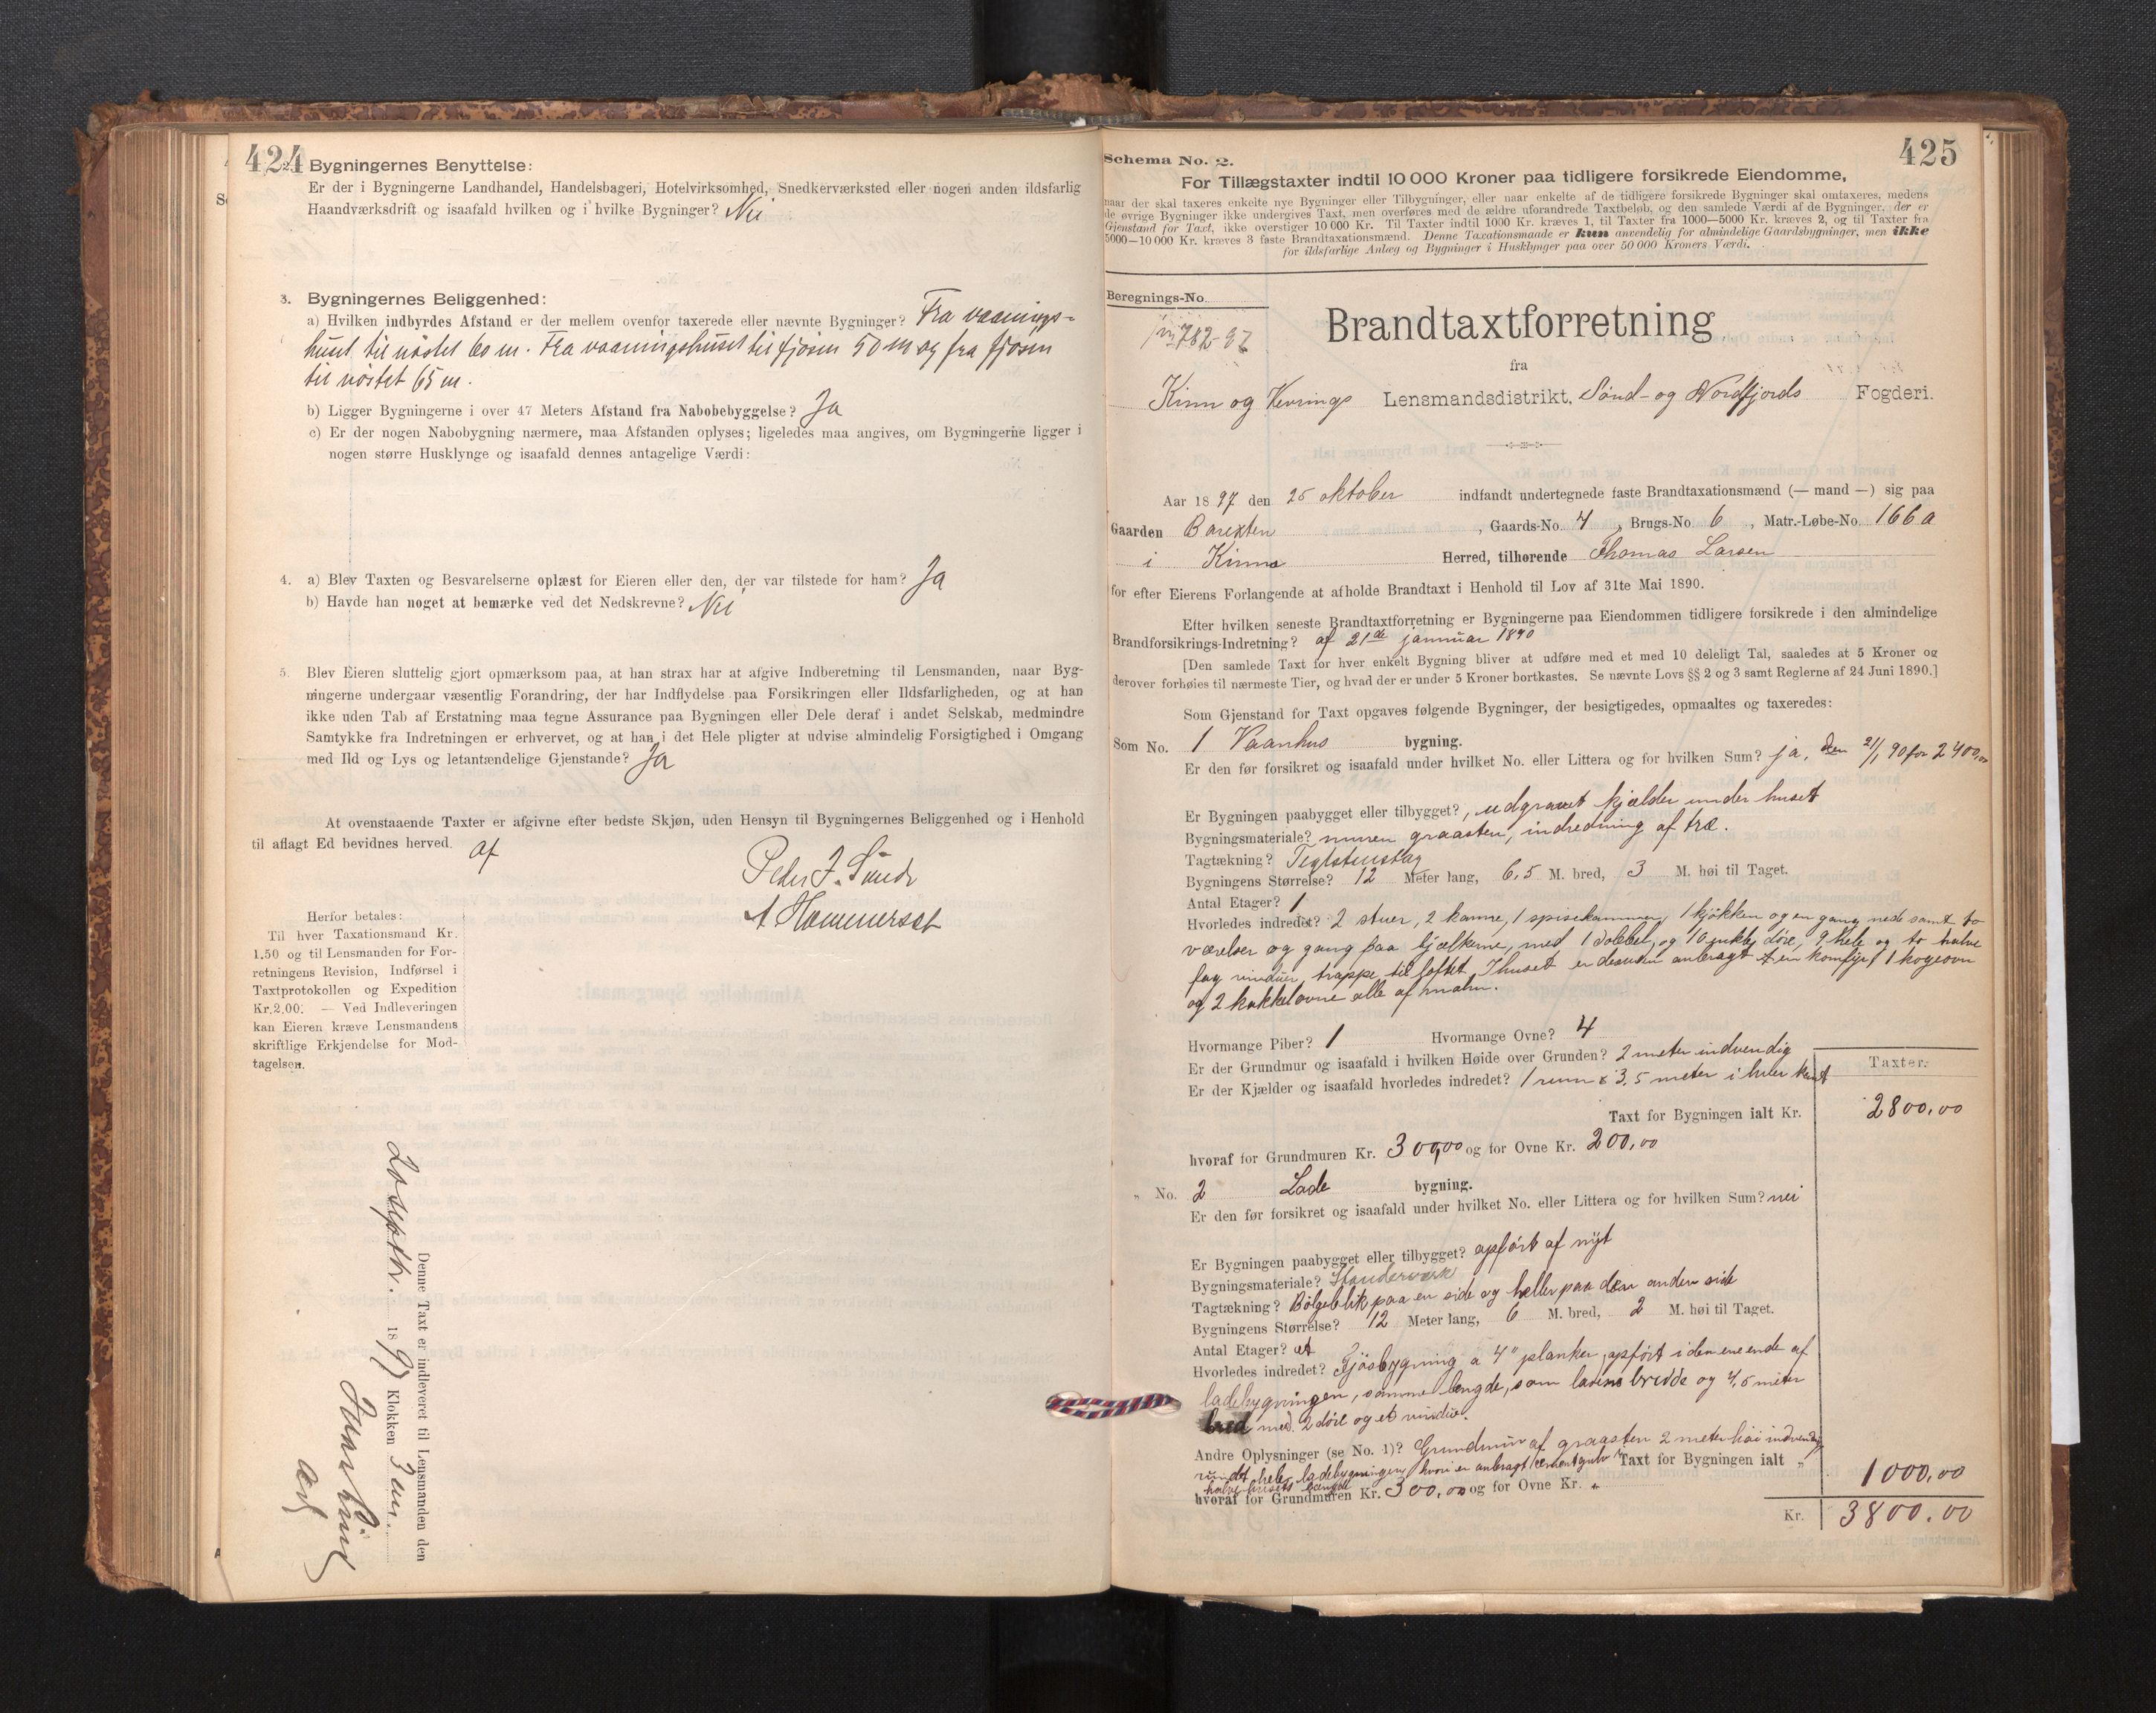 424
2. Bygningernes Benyttelse:
Er der i Bygningerne Landhandel, Handelsbageri, Hotelvirksomhed, Snedkerværksted eller nogen anden ildsfarlig
Haandværksdrift og isaafald hvilken og i hvilke Bygninger? Nei
3. Bygningernes Beliggenhed:
a) Hvilken indbyrdes Afstand er der mellem ovenfor taxerede eller nævnte Bygninger? Fra vaanings-
huset til nöstet 60 m. Fra vaaningshuset til fjösen 50 m og fra fjösen
til nöstet 65 m.
b) Ligger Bygningerne i over 47 Meters Afstand fra Nabobebyggelse? Ja
c) Er der nogen Nabobygning nærmere, maa Afstanden oplyses; ligeledes maa angives, om Bygningerne ligger i
nogen større Husklynge og isaafald dennes antagelige Værdi:
4. a) Blev Taxten og Besvarelserne oplæst for Eieren eller den, der var tilstede for ham? Ja
b) Havde han noget at bemærke ved det Nedskrevne? Nei
5. Blev Eieren sluttelig gjort opmærksom paa, at han strax har at afgive Indberetning til Lensmanden, naar Byg-
ningerne undergaar væsentlig Forandring, der har Indflydelse paa Forsikringen eller Ildsfarligheden, og at han
ikke uden Tab af Erstatning maa tegne Assurance paa Bygningen eller Dele deraf i andet Selskab, medmindre
Samtykke fra Indretningen er erhvervet, og at han i det Hele pligter at udvise almindelig Forsigtighed i Omgang
med Ild og Lys og letantændelige Gjenstande? Ja
At ovenstaaende Taxter er afgivne efter bedste Skjøn, uden Hensyn til Bygningernes Beliggenhed og i Henhold
til aflagt Ed bevidnes herved. af
Peder J. Sunde
A Hammerset
Herfor betales:
Til hver Taxationsmand Kr.
1.50 og til Lensmanden for For-
retningens Revision, Indførsel i
Taxtprotokollen og Expedition
Kr. 2.00. — Ved Indleveringen
kan Eieren kræve Lensmandens
skriftlige Erkjendelse for Mod-
tagelsen.
Denne Taxt er indleveret til Lensmanden den
septbr. 1897 Klokken 3 em.
425
Schema No. 2.
For Tillægstaxter indtil 10 000 Kroner paa tidligere forsikrede Eiendomme,
naar der skal taxeres enkelte nye Bygninger eller Tilbygninger, eller naar enkelte af de tidligere forsikrede Bygninger skal omtaxeres, medens
de øvrige Bygninger ikke undergives Taxt, men overføres med de ældre uforandrede Taxtbeløb, og den samlede Værdi af de Bygninger, der er
Gjenstand for Taxt, ikke overstiger 10 000 Kr. Til Taxter indtil 1000 Kr. kræves 1, til Taxter fra 1000—5000 Kr. kræves 2, og til Taxter fra
5000—10 000 Kr. kræves 3 faste Brandtaxationsmænd. Denne Taxationsmaade er kun anvendelig for almindelige Gaardsbygninger, men ikke
for ildsfarlige Anlæg og Bygninger i Husklynger paa over 50 000 Kroners Værdi.
Beregnings-No.
782-97
Brandtaxtforretning
fra
Kinn og Kevrings Lensmandsdistrikt, Sönd- og Nordfjords Fogderi.
Aar 1897 den 25 oktober indfandt undertegnede faste Brandtaxationsmænd (— mand —) sig paa
Gaarden Barexten, Gaards-No. 4, Brugs-No. 6, Matr.-Løbe-No. 166 a
i Kinns Herred, tilhørende Thomas Larsen
for efter Eierens Forlangende at afholde Brandtaxt i Henhold til Lov af 31te Mai 1890.
Efter hvilken seneste Brandtaxtforretning er Bygningerne paa Eiendommen tidligere forsikrede i den almindelige
Brandforsikrings-Indretning? af 21de januar 1890
[Den samlede Taxt for hver enkelt Bygning bliver at udføre med et med 10 deleligt Tal, saaledes at 5 Kroner og
derover forhøies til nærmeste Tier, og hvad der er under 5 Kroner bortkastes. Se nævnte Lovs §§ 2 og 3 samt Reglerne af 24 Juni 1890.]
Som Gjenstand for Taxt opgaves følgende Bygninger, der besigtigedes, opmaaltes og taxeredes:
Som No. 1 Vaanhus bygning.
Er den før forsikret og isaafald under hvilket No. eller Littera og for hvilken Sum? ja, den 21/1 90 for 2400,00
Er Bygningen paabygget eller tilbygget?, udgravet kjælder under huset
Bygningsmateriale? muren graasten, indredning af træ.
Tagtækning? Teglstenstag
Bygningens Størrelse? 12 Meter lang, 6,5 M. bred, 3 M. høi til Taget.
Antal Etager? 1
Hvorledes indredet? 2 stuer, 2 kamre, 1 spisekammer, 1 kjøkken og en gang nede samt to
værelser og gang paa bjælkerne, med 1 dobbel, og 10 enkle döre, 9 hele og to halve
fag vinduer, trappe til loftet. I huset er desuden anbragt en komfyr, 1 kogeovn
og 2 kakkelovne alle af malm.
Hvormange Piber? 1 Hvormange Ovne? 4
Er der Grundmur og isaafald i hvilken Høide over Grunden? 2 meter indvendig
Er der Kjælder og isaafald hvorledes indredet? 1 rum 3,5 meter i hver kant
Taxter:
Taxt for Bygningen ialt Kr. 2800,00
hvoraf for Grundmuren Kr. 300,00 og for Ovne Kr. 200,00
" No. 2 Lade bygning.
Er den før forsikret og isaafald under hvilket No. eller Littera og for hvilken Sum? nei
Er Bygningen paabygget eller tilbygget? opfört af nyt
Bygningsmateriale? Standerværk
Tagtækning? Bölgeblik paa en side og heller paa den anden side
Bygningens Størrelse? 12 Meter lang, 6 M. bred, 2 M. høi til Taget.
Antal Etager? et
Hvorledes indredet? Fjösbygning a 4" planker, opfört i den ene ende af
ladebygningen, samme længde, som ladens bredde og 4,5 meter
bred med 2 döre og et vindue.
Andre Oplysninger (se No. 1)? Grundmur af graasten 2 meter höi indvendig
rundt hele ladebygningen, hvori er anbragt cementgulv Taxt for Bygningen ialt „ 1000,00
halve husets længde
hvoraf for Grundmuren Kr. 300,00 og for Ovne Kr. "
Kr. 3800.00